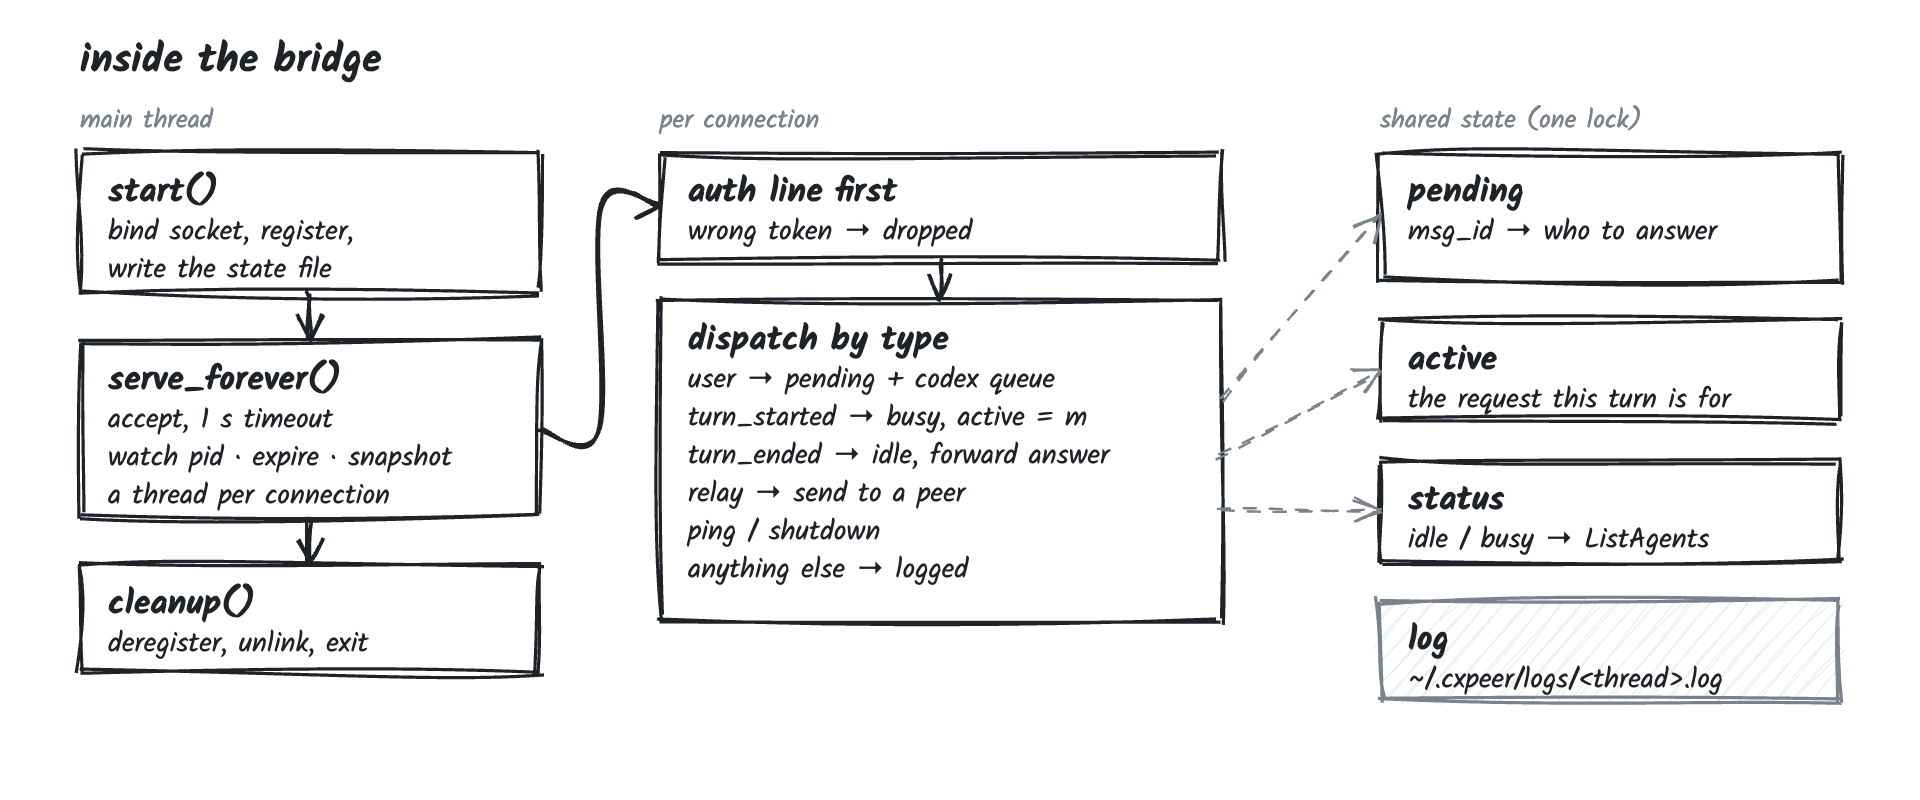 inside the bridge
main thread
start()
bind socket, register,
write the state file
serve_forever()
accept, 1 s timeout
watch pid · expire · snapshot
a thread per connection
cleanup()
deregister, unlink, exit
per connection
auth line first
wrong token → dropped
dispatch by type
user → pending + codex queue
turn_started → busy, active = m
turn_ended → idle, forward answer
relay → send to a peer
ping / shutdown
anything else → logged
shared state (one lock)
pending
msg_id → who to answer
active
the request this turn is for
status
idle / busy → ListAgents
log
~/.cxpeer/logs/<thread>.log